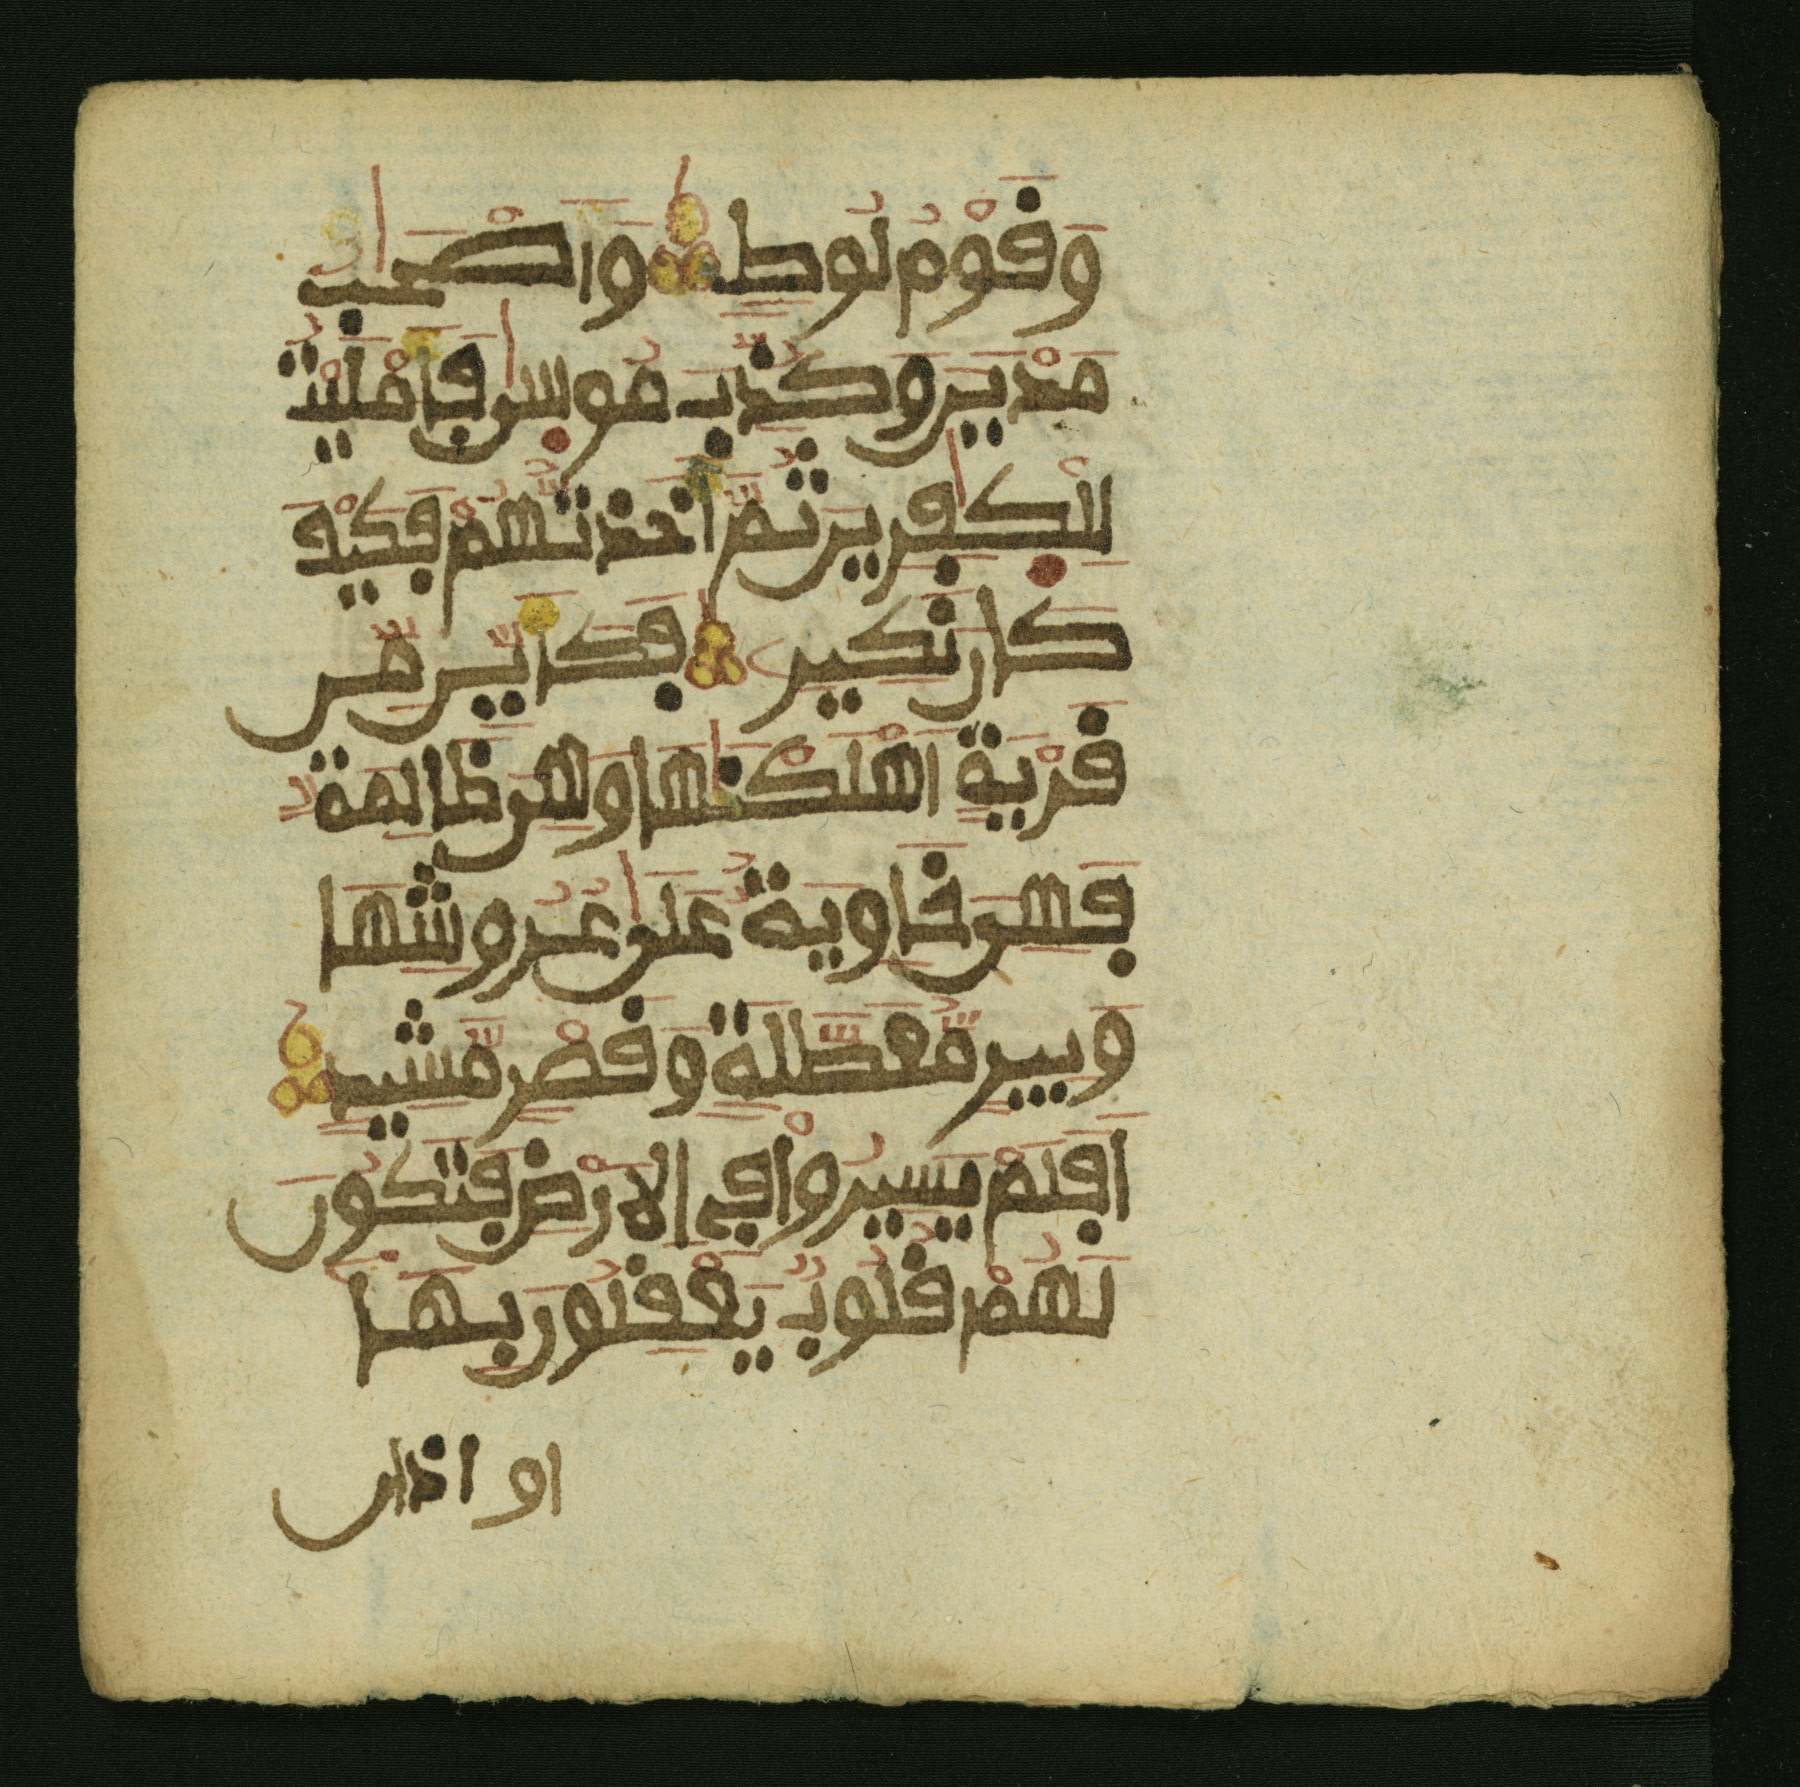 وَقَوْمُ لُوطٍ وَاَصْحَٰبُ
مَدْيَنَ وَكُذِّبَ مُوسٜىٰ فَأَمْلَيْتُ
لِلْكٰٜفِرِينَ ثُمَّ أَخَذتُّهُمْ فَكَيْفَ
كَانَ نَكِيرِ فَكَأَيِّن مِّن
قَرْيَةٍ اَهْلَكْنَٰهَا وَهِيَ ظَالِمَةٌ
فَهِيَ خَاوِيَةٌ عَلَىٰ عُرُوشِهَا
وَبِيرٍ مُّعَطَّلَةٍ وَقَصْرٍ مَّشِيدٍ
اَفَلَمْ يَسِيرُوا فِي الَارْضِ فَتَكُونَ
لَهُمْ قُلُوبٌ يَعْقِلُونَ بِهَا
او اذان